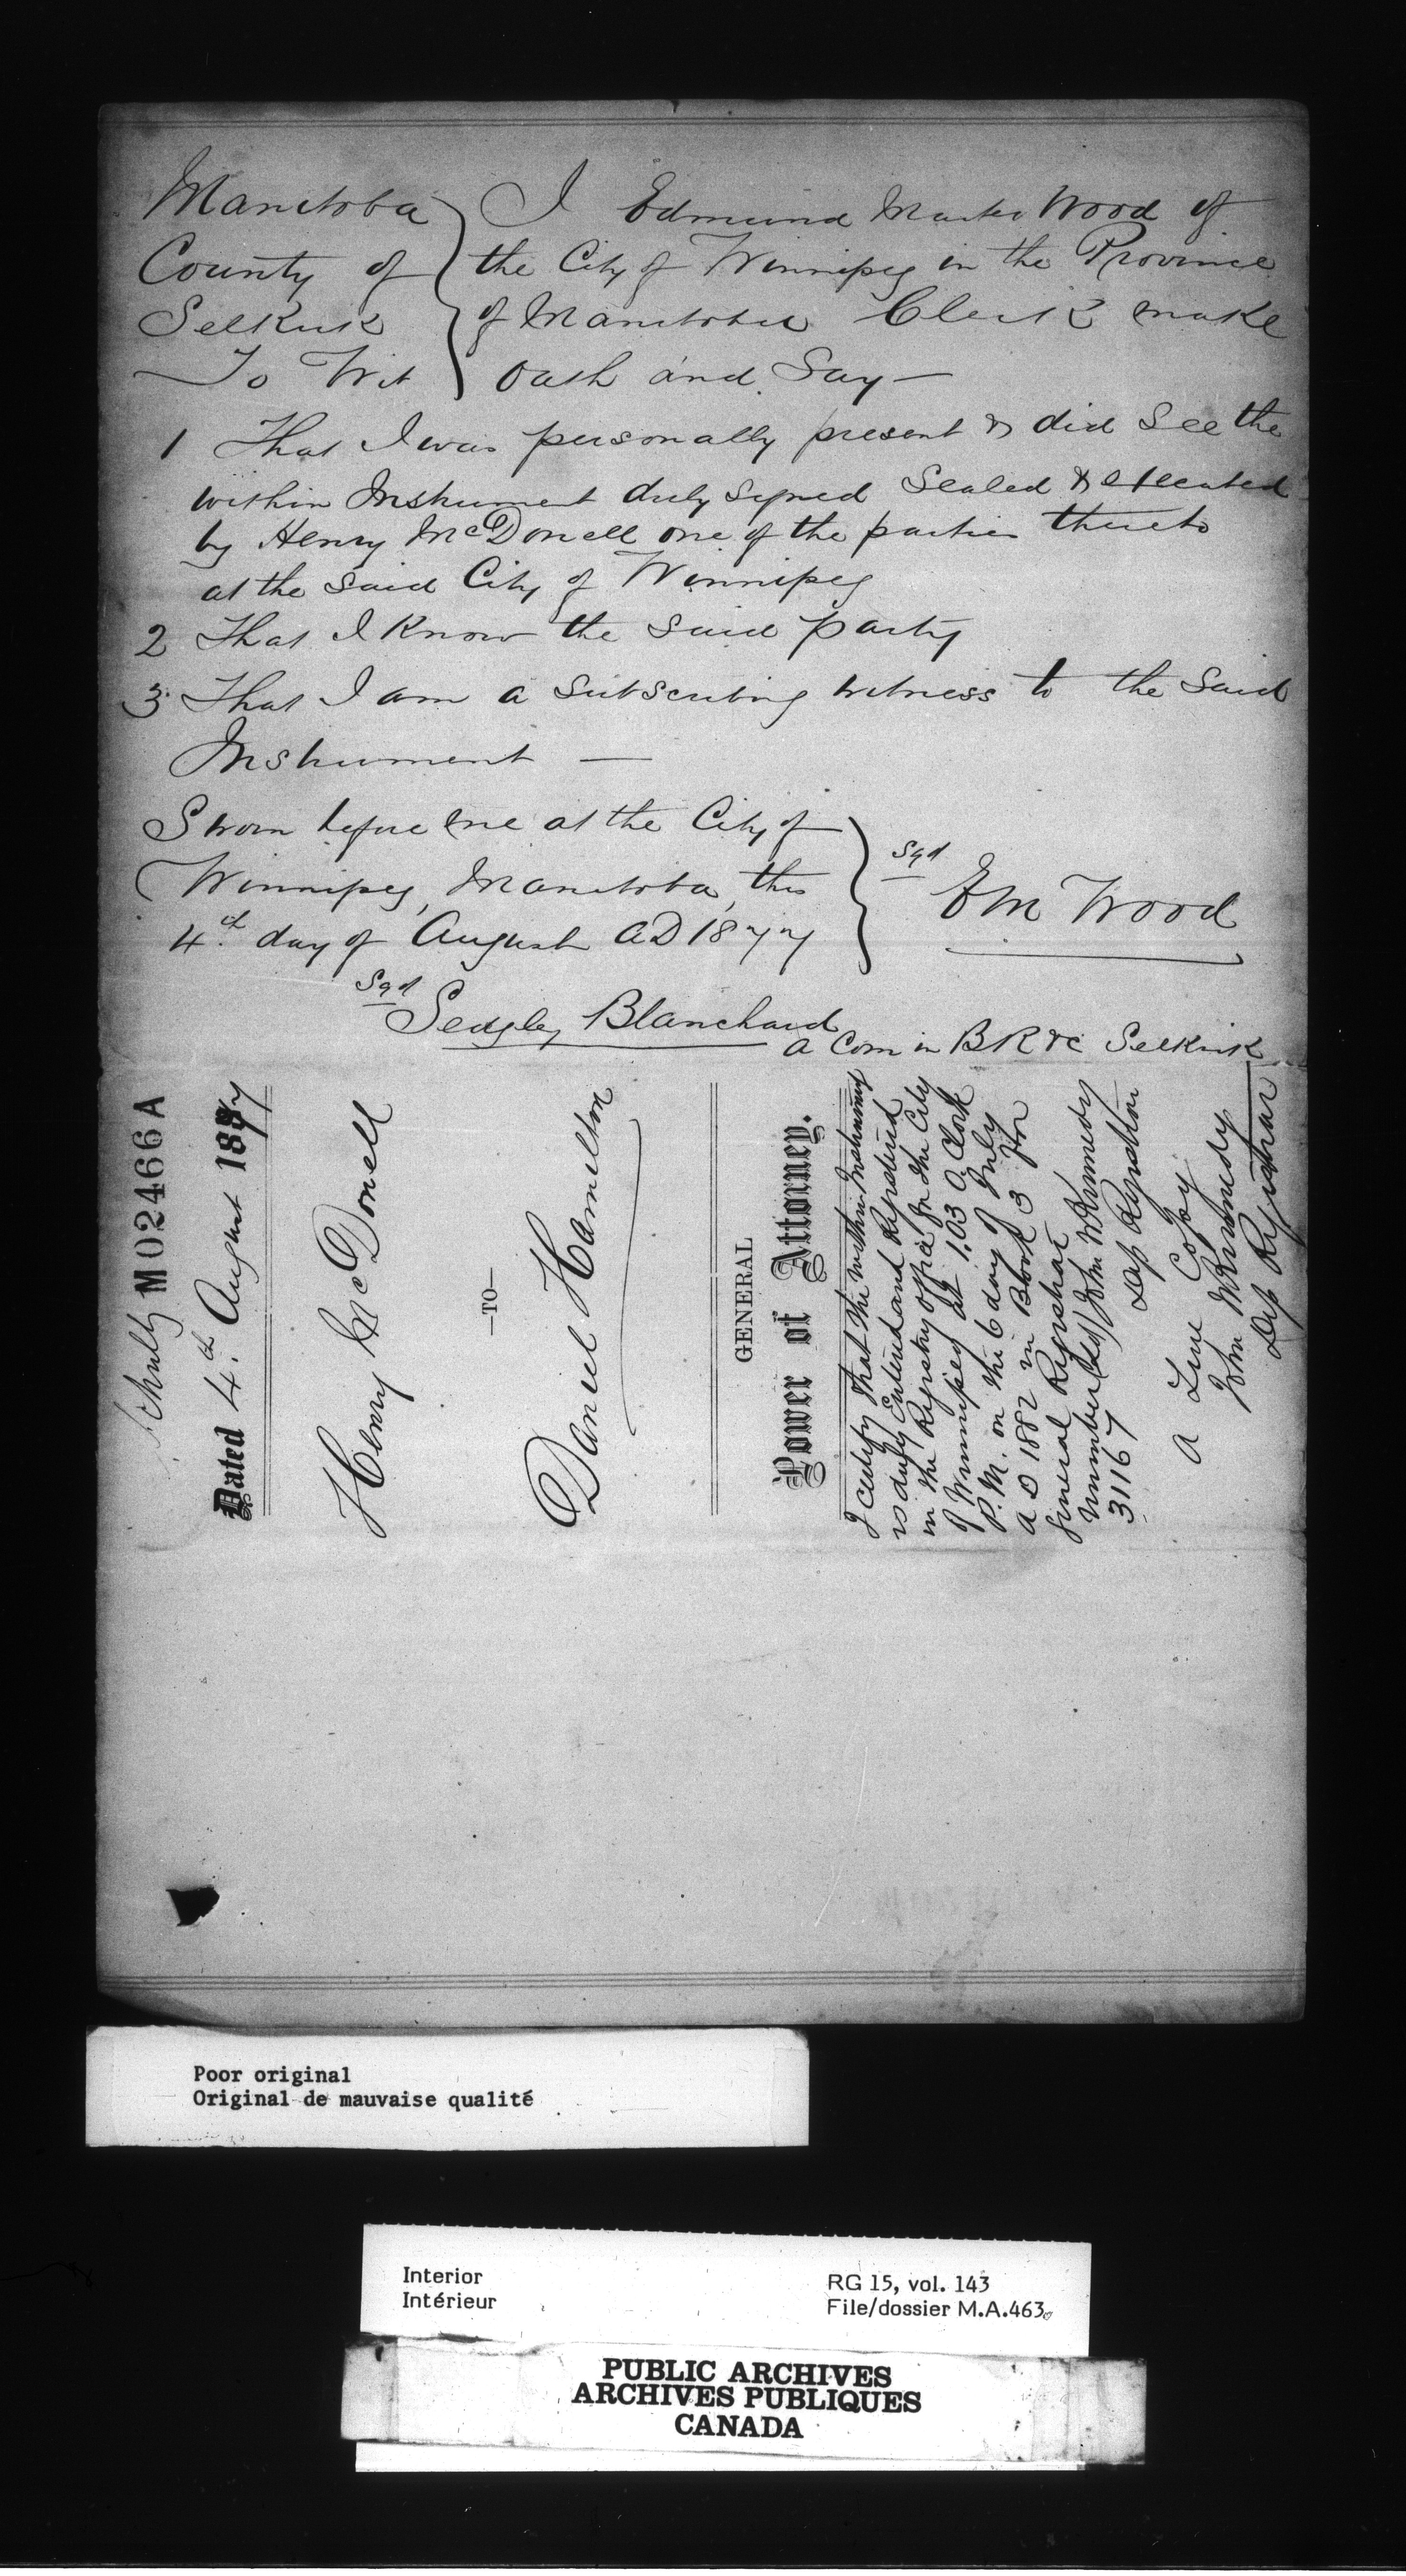 Manitoba
County of
Selkirk
To Wit
I Edmund Wood of
the City of Winnipeg in the Province
of Manitoba Clerk make
Oath and Say —
1 That I was personally present & did see the
within Instrument duly signed Sealed & executed
by Henry McDonell one of the parties thereto
at the said City of Winnipeg
2 That I know the said party
3 That I am a subscribing witness to the said
Instrument —
Sworn before me at the City of
Winnipeg, Manitoba, this
4th day of August AD 1877
Sgd
E M Wood
Sgd
Sedgley Blanchard
a Com in BR &c Selkirk
Schultz
M02466A
Dated 4th August 1877
Henry McDonell
—TO—
Daniel Hamilton
GENERAL
Power of Attorney.
I certify that the within Instrument
is duly Entered and Registered
in the Registry office for the City
of Winnipeg at 1.03 O,Clock
P.M. on the 6 day of July
A D 1882 in Book 3 for
General Registrar
Numbered John W Kennedy
31167 Dep Registrar
A True Copy
John W Kennedy
Dep Registrar
Poor original
Original de mauvaise qualité
Interior
Intérieur
RG 15, vol. 143
File/dossier M.A.463
PUBLIC ARCHIVES
ARCHIVES PUBLIQUES
CANADA